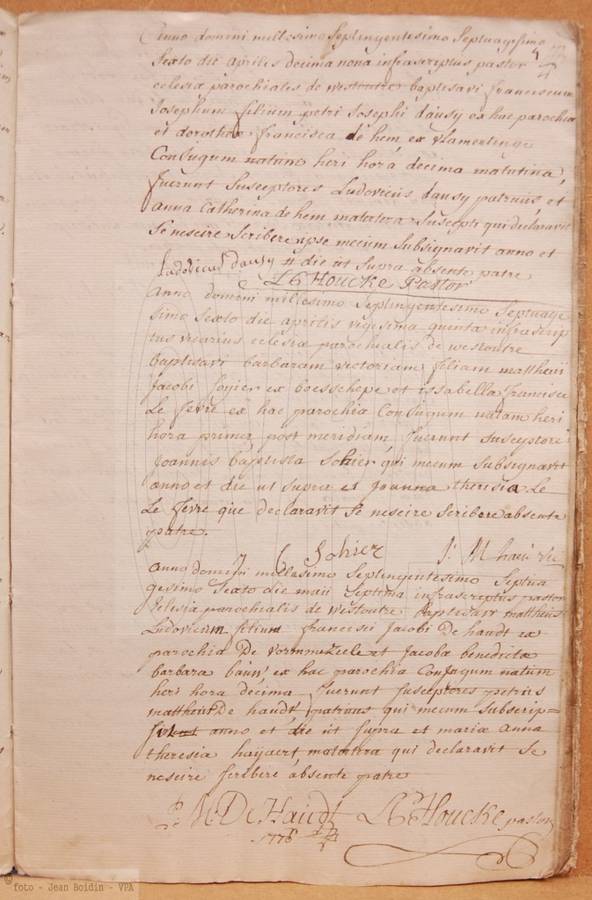 Anno domini millesimo Septingentesimo Septuagesimo
Sexto die aprilis decima nona infrascriptus pastor
ecclesia parochiales de westoutre baptisavi franciscum
Josephum filium petri Josephi dausy ex hac parochia
et dorothea francisca de hem ex vlamertinge
Conjugum natum heri hora decima matutina,
fuerunt Susceptores Ludovicus dausy patruus, et
anna Catherina de hem matertera Suscepti qui declaravit
Se nescire Scribere ipse mecum Subsignavit anno et
Ludovicus dausy # die ut Supra absente patre
Houcke Pastor
Anno domini millesimo Septingentesimo Septuage
Simo Sexto die aprilis vigesima quinta infrascrip
tus vicarius eclesia parochialis de westoutre
baptisavi barbaram victoriam filiam matthei
Jacobi Sohier ex boesschepe et issabella francisca
Le fevre ex hac parochia Conjugum natam heri
hora prima post meridiam fuerunt Susceptores
Joannis baptista Sohier qui mecum Subsignavit
anno et die ut Supra et Joanna theresia Le
Le fevre que declaravit Se nescire Scribere absente
patre.
J Sohier
anno domini millesimo Septingentesimo Septua
gesimo Sexto die maii Septima infrascriptus pastor
Eclesia parochialis de westoutre baptisavi mattheus
Ludovicum filium francisci Jacobi De haudt ex
parochia De vormezeele et Jacoba benedicta
barbara bauw ex hac parochia Conjugum natum
heri hora decima fuerunt Susceptores petrus
mattheus De haudt patruus qui mecum Subscrip=
anno et die ut Supra et maria Anna
theresia hayaert matertera qui declaravit Se
nescire Scribere absente patre
P: M: De Haudt Houcke pastor
1776
© foto - Jean Boidin - VPA